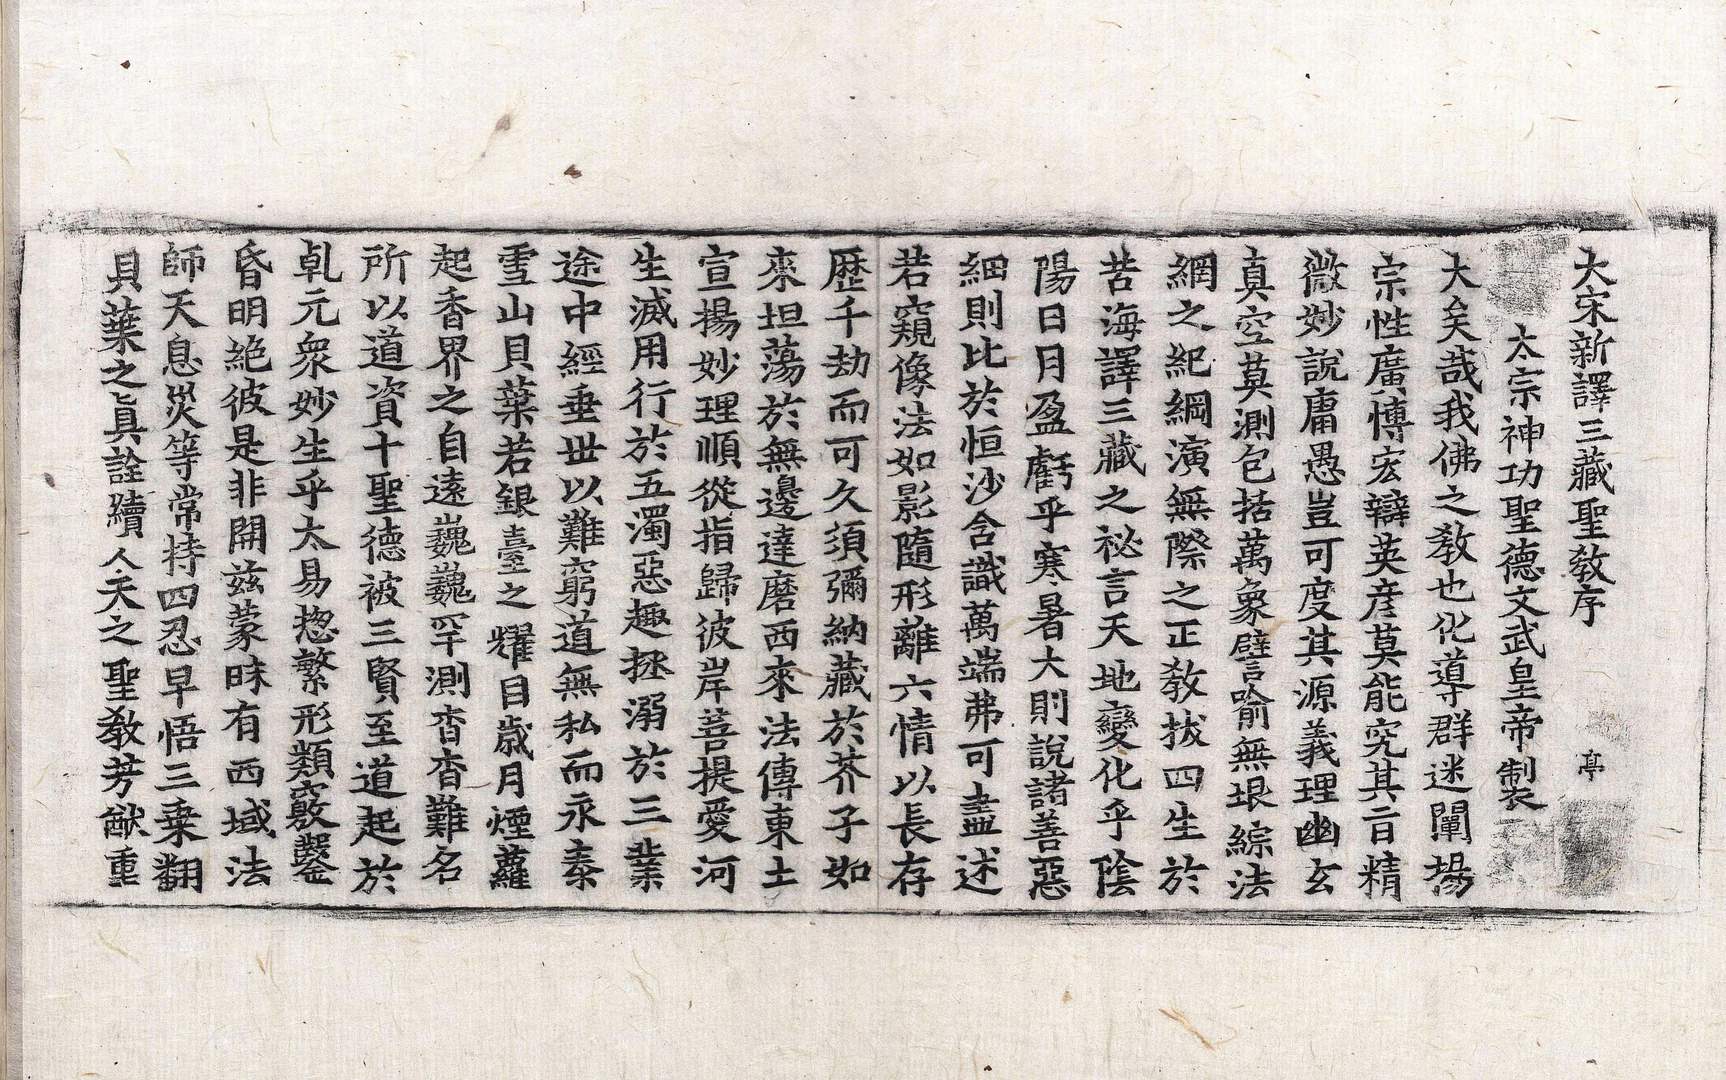 大宋新譯三藏聖敎序 亭
太宗神功聖德文武皇帝製
大矣哉我佛之敎也化導群迷闡揚
宗性廣博宏辯英彦莫能究其旨精
微妙說庸愚豈可度其源義理幽玄
真空莫測包括萬象譬喻無垠綜法
網之紀綱演無際之正敎拔四生於
苦海譯三藏之祕言天地變化乎陰
陽日月盈虧乎寒暑大則說諸善惡
細則比於恒沙含識萬端弗可盡述
若窺像法如影隨形離六情以長存
歷千劫而可久須彌納藏於芥子如
來坦蕩於無邊達磨西來法傳東土
宣揚妙理順從指歸彼岸菩提愛河
生滅用行於五濁惡趣拯溺於三業
途中經垂世以難窮道無私而永泰
雪山貝葉若銀臺之耀目歲月煙蘿
起香界之自遠巍巍罕測杳杳難名
所以道資十聖德被三賢至道起於
乹元衆妙生乎太易揔繁形類竅鑿
昏明絶彼是非開兹蒙昧有西域法
師天息災等常持四忍早悟三乗翻
貝葉之眞詮續人天之聖敎芳猷重